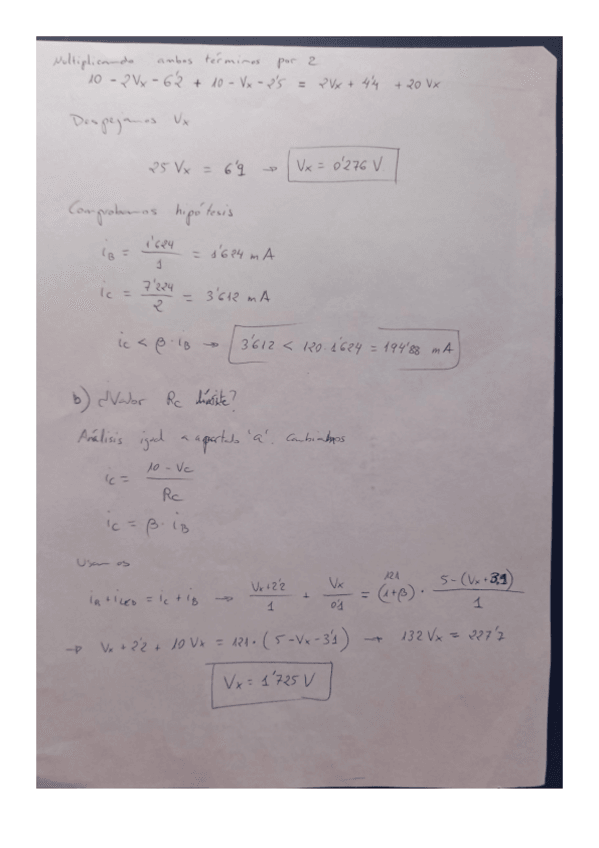 Multiplicando ambos términos por 2
10 - 2Vx - 6'2 + 10 - Vx - 2'5 = 2Vx + 4'4 + 20 Vx
Despejamos Vx
25 Vx = 6'9 → Vx = 0'276 V
Comprobamos hipótesis
iB = 1'624 / 1 = 1'624 mA
ic = 7'224 / 2 = 3'612 mA
ic < β · iB → 3'612 < 120 · 1'624 = 194'88 mA
b) ¿Valor Rc límite?
Análisis igual a apartado 'a'. Cambiamos
ic = 10 - Vc / Rc
ic = β · iB
Usamos
iR + iLED = ic + iB → Vx + 2'2 / 1 + Vx / 0'1 = (1+β) · 5 - (Vx + 3,1) / 1
121
→ Vx + 2'2 + 10 Vx = 121 · (5 - Vx - 3'1) → 132 Vx = 227'7
Vx = 1'725 V